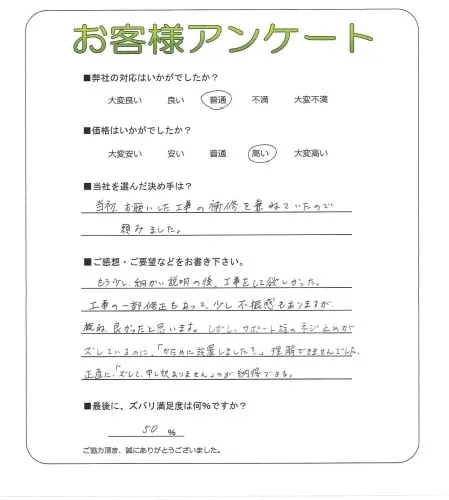 お客様アンケート
■弊社の対応はいかがでしたか?
大変良い 良い 普通 不満 大変不満
■価格はいかがでしたか?
大変安い 安い 普通 高い 大変高い
■当社を選んだ決め手は?
当初、お願いした工事の補修を兼ねていたので
頼みました。
■ご感想・ご要望などをお書き下さい。
もう少し、細かい説明の後、工事をして欲しかった。
工事の一部修正もあって、少し不振感もありますが、
概ね、良かったと思います。しかし、サポート版のネジ止めが
ズレているのに、「かために設置しました?」理解できませんでした。
正直に、「ズレて、申し訳ありません」のが納得できる。
■最後に、ズバリ満足度は何%ですか?
50 %
ご協力頂き、誠にありがとうございました。